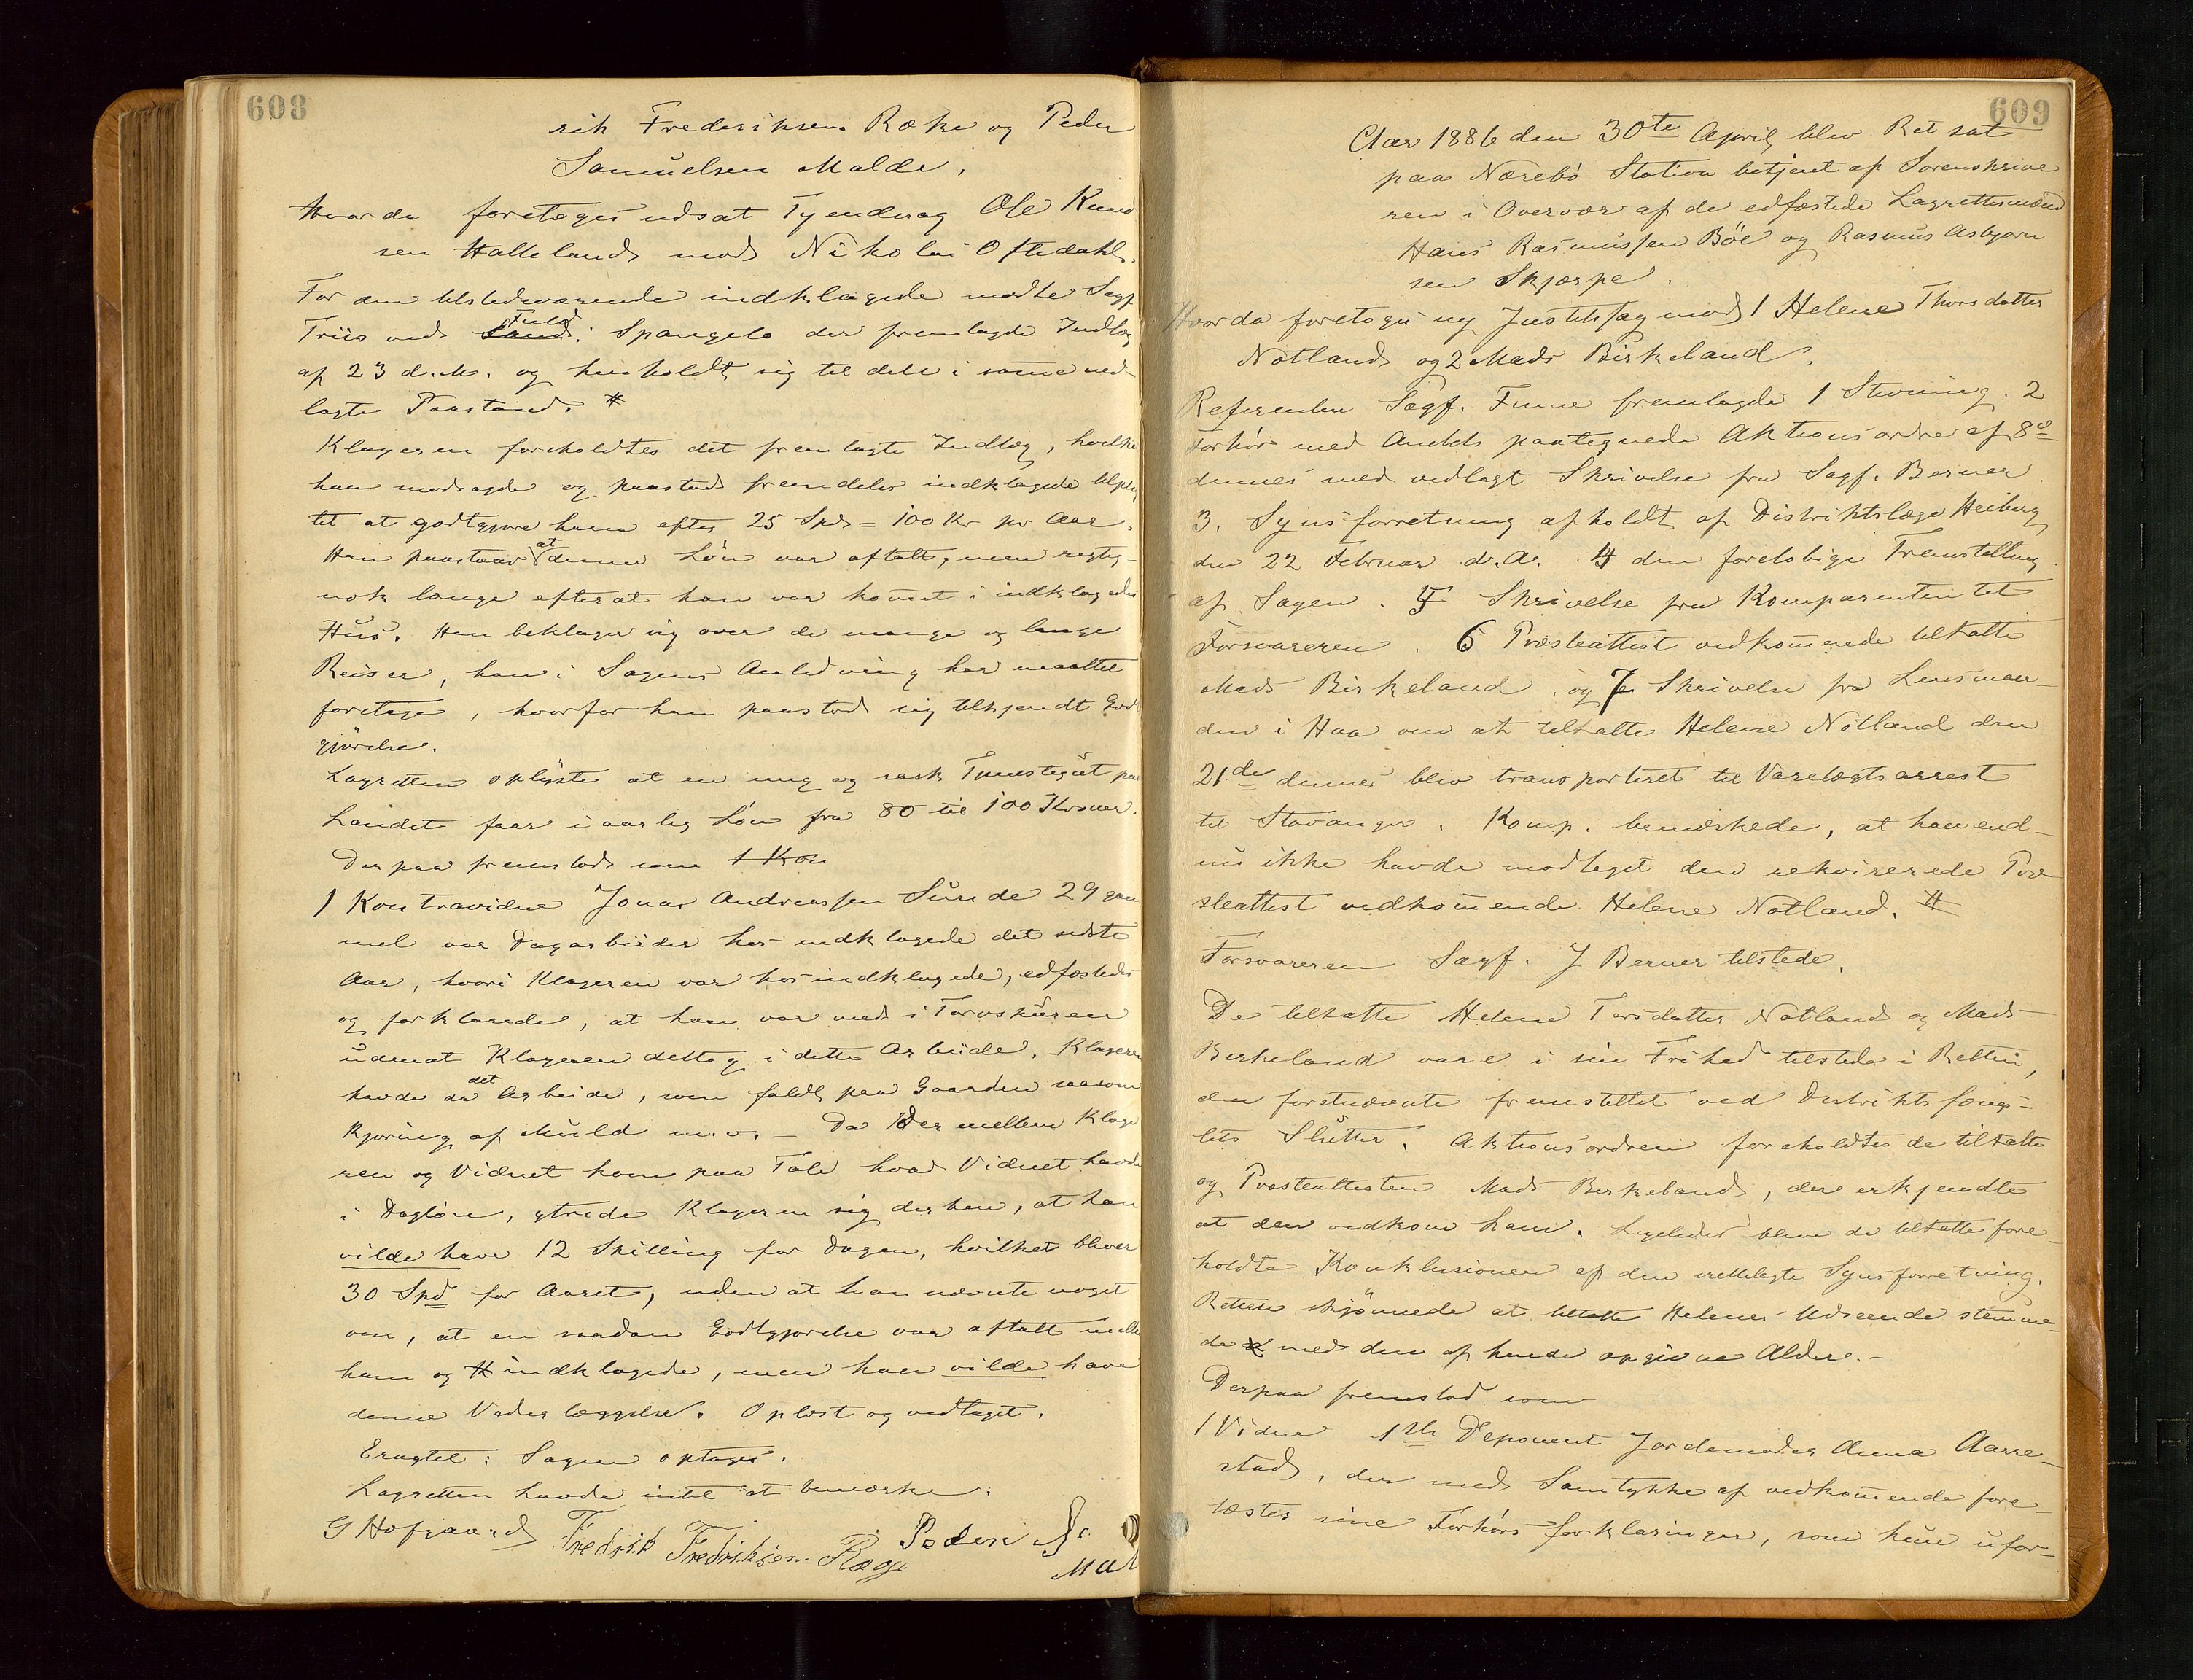 608
rik Frederiksen Ræke og Peder
Samuelsen Malde.
Hvorda foretoges udsat Tyendesag Ole Knud
sen Hallelands mod Nikolai Oftedahl.
For den tilstedeværende indklagede mødte Sagf
Triis ved Fuld. Spangelo der fremlagde Indlæg
af 23 d. M. og henholdt sig til den i samme ned-
lagte Paastand. #
Klageren foreholdtes det fremlagte Indlæg, hvilke
han modsagde og paastod fremdeles indklagede tilplig
tet at godtgjøre ham efter 25 Spd = 100 Kr pr Aar.
Han paastaar at denne Løn var aftalt, men rigtig-
nok længe efterat han var kommet i indklagedes
Hus. Han beklager sig over de mange og lange
Reiser, han i Sagens Anledning har maattet
foretage, hvorfor han paastod sig tilkjendt God
gjørelse.
Lagretten oplyste at en ung og rask Tjenestegut paa
Landet faar i aarlig Løn fra 80 til 100 Kroner.
Derpaa fremstod som 1 Kon
1 Kontravidne Jonas Andreassen Sunde 29 gam
mel var Dagarbeider hos indklagede det sidste
Aar, hvori Klageren var hos indklagede, edfæstedes
og forklarede, at han var med i Torvskuren
udenat Klageren deltog i dette Arbeide. Klageren
havde da det Arbeide, som faldt paa Gaarden saasom
Kjøring af Muld m. v. – Da der mellem Klage
ren og Vidnet kom paa Tale hvad Vidnet havde
i Dagløn, ytrede Klageren sig derhen, at han
vilde have 12 Skilling for Dagen, hvilket bliver
30 Spd for Aaret, uden at han nævnte noget
om, at en saadan Godtgjørelse var aftalt melle
ham og indklagede, men han vilde have
denne Vederlæggelse. Oplæst og vedtaget.
Eragtet: Sagen optages.
Lagretten havde intet at bemærke.
G Hofgaard Fredrik Fredriksen Ræge Peder
Mal
609
Aar 1886 den 30te April blev Ret sat
paa Nærebø Station betjent af Sorenskrive
ren i Overvær af de edfæstede Lagrettesmænd
Hans Rasmussen Böe og Rasmus Asbjørn
sen Skjærpe.
Hvorda foretoges ny Justitssag mod 1 Helene Thorsdatter
Notland og 2 Mads Birkeland.
Referenten Sagf. Finne fremlagde 1 Stevning. 2
Forhør med Amtets paategnede Aktionsordre af 8de
dennes med vedlagt Skrivelse fra Sagf. Berner
3. Synsforretning afholdt af Distriktslæge Heiberg
den 22 Februar d. A. 4 den foreløbige Fremstilling
af Sagen. 5 Skrivelse fra Komparenten til
Forsvareren. 6 Præsteattest vedkommende tiltalte
Mads Birkeland og 7 Skrivelse fra Lensman-
den i Haa om at tiltalte Helene Notland den
21de dennes blev transporteret til Varetægtsarrest
til Stavanger. Komp. bemærkede, at han end-
nu ikke havde modtaget den rekvirerede Præ
steattest vedkommende Helene Notland. #
Forsvareren Sagf. J Berner tilstede.
De tiltalte Helene Torsdatter Notland og Mads
Birkeland vare i sin Frihed tilstede i Retten,
den førstnævnte fremstillet ved Distriktsfængs-
lets Slutter. Aktionsordren foreholdtes de tiltalte
og Præsteattesten Mads Birkeland, der erkjendte
at den vedkom ham. Ligeledes bleve de tiltalte fore-
holdte Konklusionen af den irettelagte Synsforretning.
Retten skjønnede at tiltalte Helenes Udseende stemme-
de med den af hende opgivne Alder. –
Derpaa fremstod som
1 Vidne 1ste Deponent Jordemoder Anna Aarre-
stad, der med Samtykke af vedkommende fore-
læstes sine Forhørsforklaringer, som hun ufor-